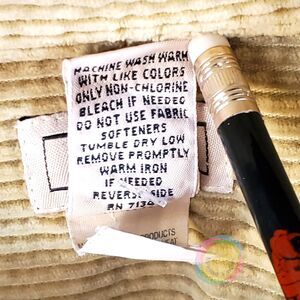 MACHINE WASH WARM
WITH LIKE COLORS
ONLY NON-CHLORINE
BLEACH IF NEEDED
DO NOT USE FABRIC
SOFTENERS
TUMBLE DRY LOW
REMOVE PROMPTLY
WARM IRON
IF NEEDED
REVERSE SIDE
RN 7134
PRODUCTS